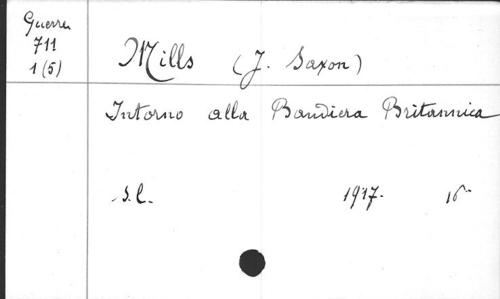 Guerre
711
1 (5)
Mills (J. Saxon)
Intorno alla Bandiera Britannica
s.l. 1917. 16°